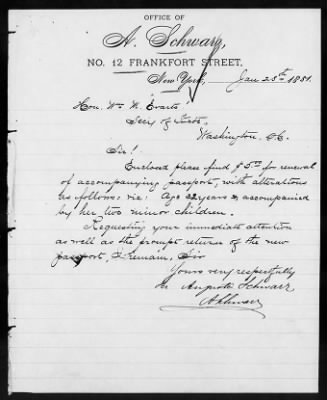 OFFICE OF
A. Schwarz,
NO. 12 FRANKFORT STREET,
New York, Jan 25th 1881.
Hon. Wm M. Evarts
Secy of State
Washington, D.C.
Sir!
Enclosed please find $5.00 for renewal
of accompanying passport, with alterations
as follows: viz: Age 32 years &, accompanied
by her two minor children.
Requesting your immediate attention
as well as the prompt return of the new
passport, I remain, Sir
Yours very respectfully
Auguste Schwarz
A Schwarz